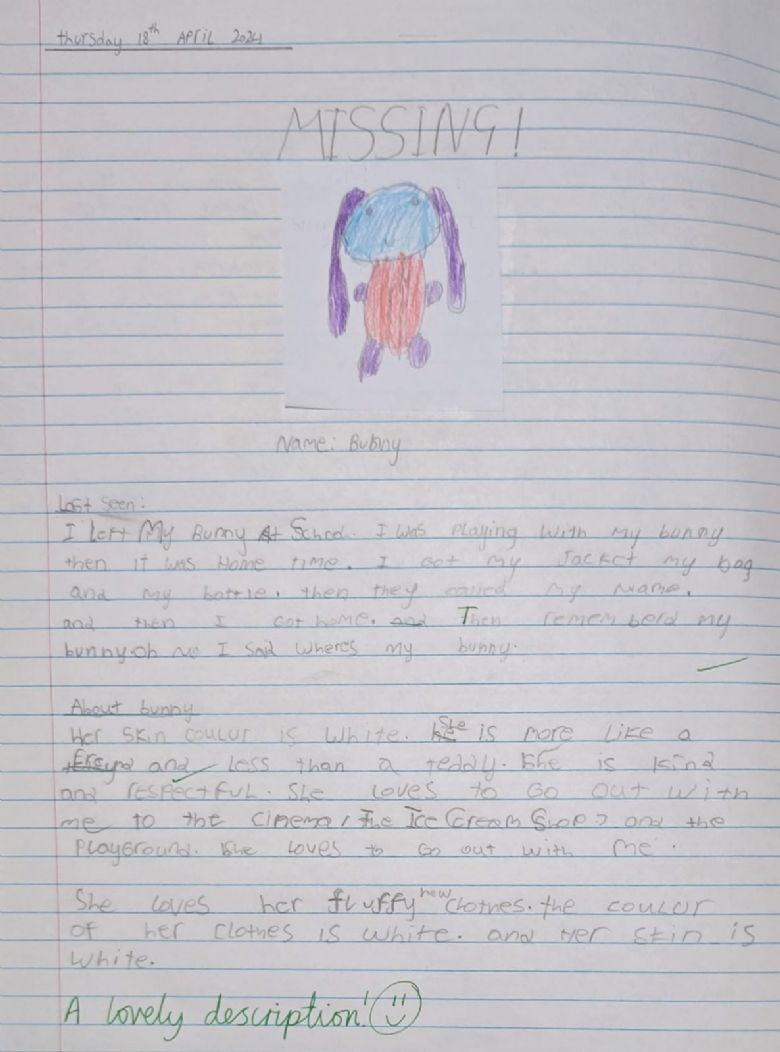 thursday 18th April 2024
MISSING!
Name: Bubny
Last seen:
I left My Bunny At School. I was playing with my bunny
then it was Home time. I Got my Jacket my bag
and my bottle. then they called my name.
and then I Got home. and Then rememberd my
bunny.oh no I said where's my bunny.
About bunny
Her skin coulur is white. he She is more like a
and less than a teddy. She is kind
and respectful. She loves to Go out with
me to the cinema, The Ice Cream Shop, and the
Playground. She loves to Go out with me.
She loves her fluffy new clothes. the coulur
of her clothes is white. and Her skin is
white.
A lovely description!